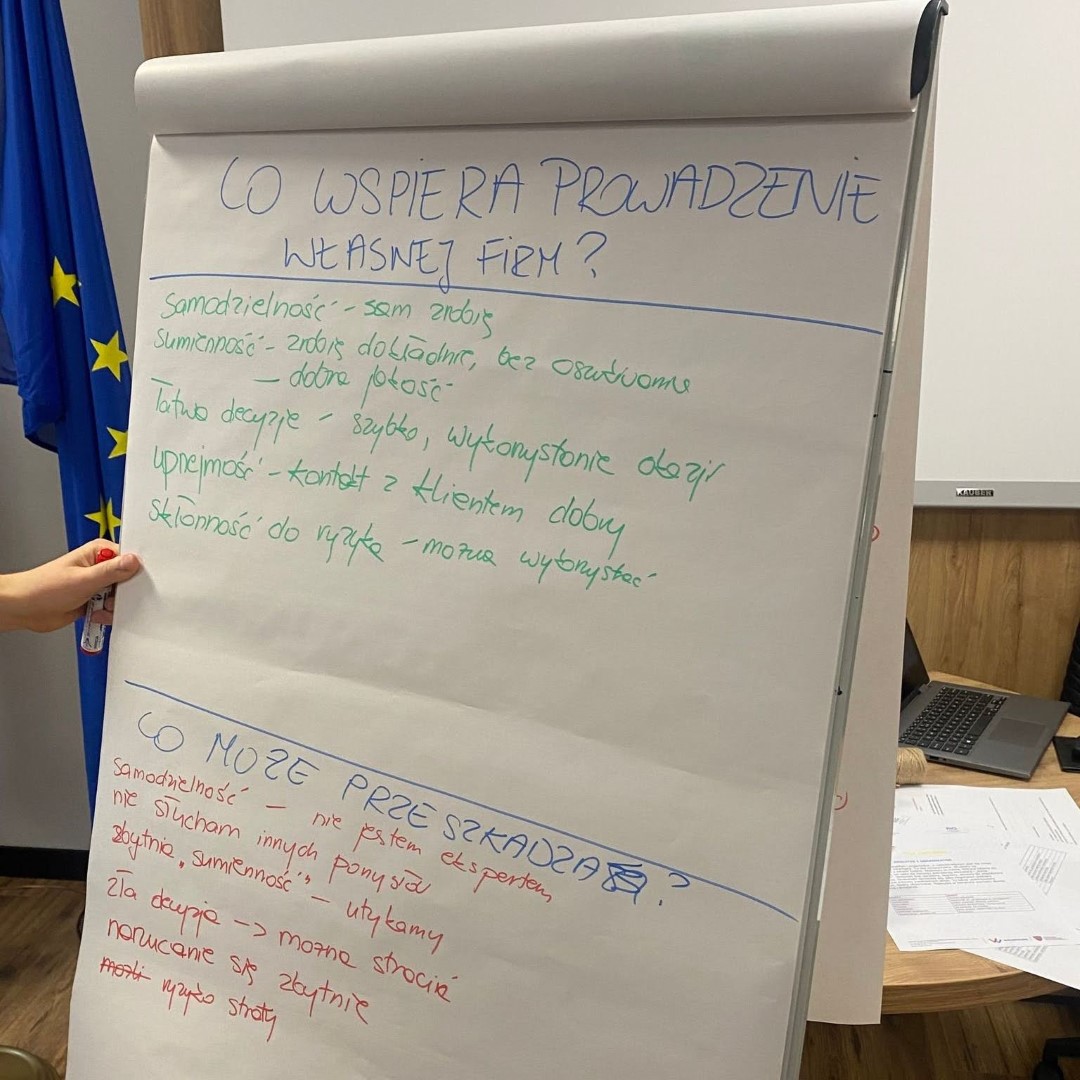 CO WSPIERA PROWADZENIE
WŁASNEJ FIRM?
Samodzielność - sam zrobię
Sumienność - zrobię dokładnie, bez oszukiwania
- dobra jakość
Łatwo decyzje - szybko, wykorzystanie okazji
uprzejmość - kontakt z klientem dobry
skłonność do ryzyka - można wykorzystać
CO MOŻE PRZESZKADZAĆ?
samodzielność - nie jestem ekspertem
nie słucham innych pomysłów
zbytnia "sumienność" - utykamy
zła decyzja -> można stracić
narzucanie się zbytnie
ryzyko straty
KAUBER